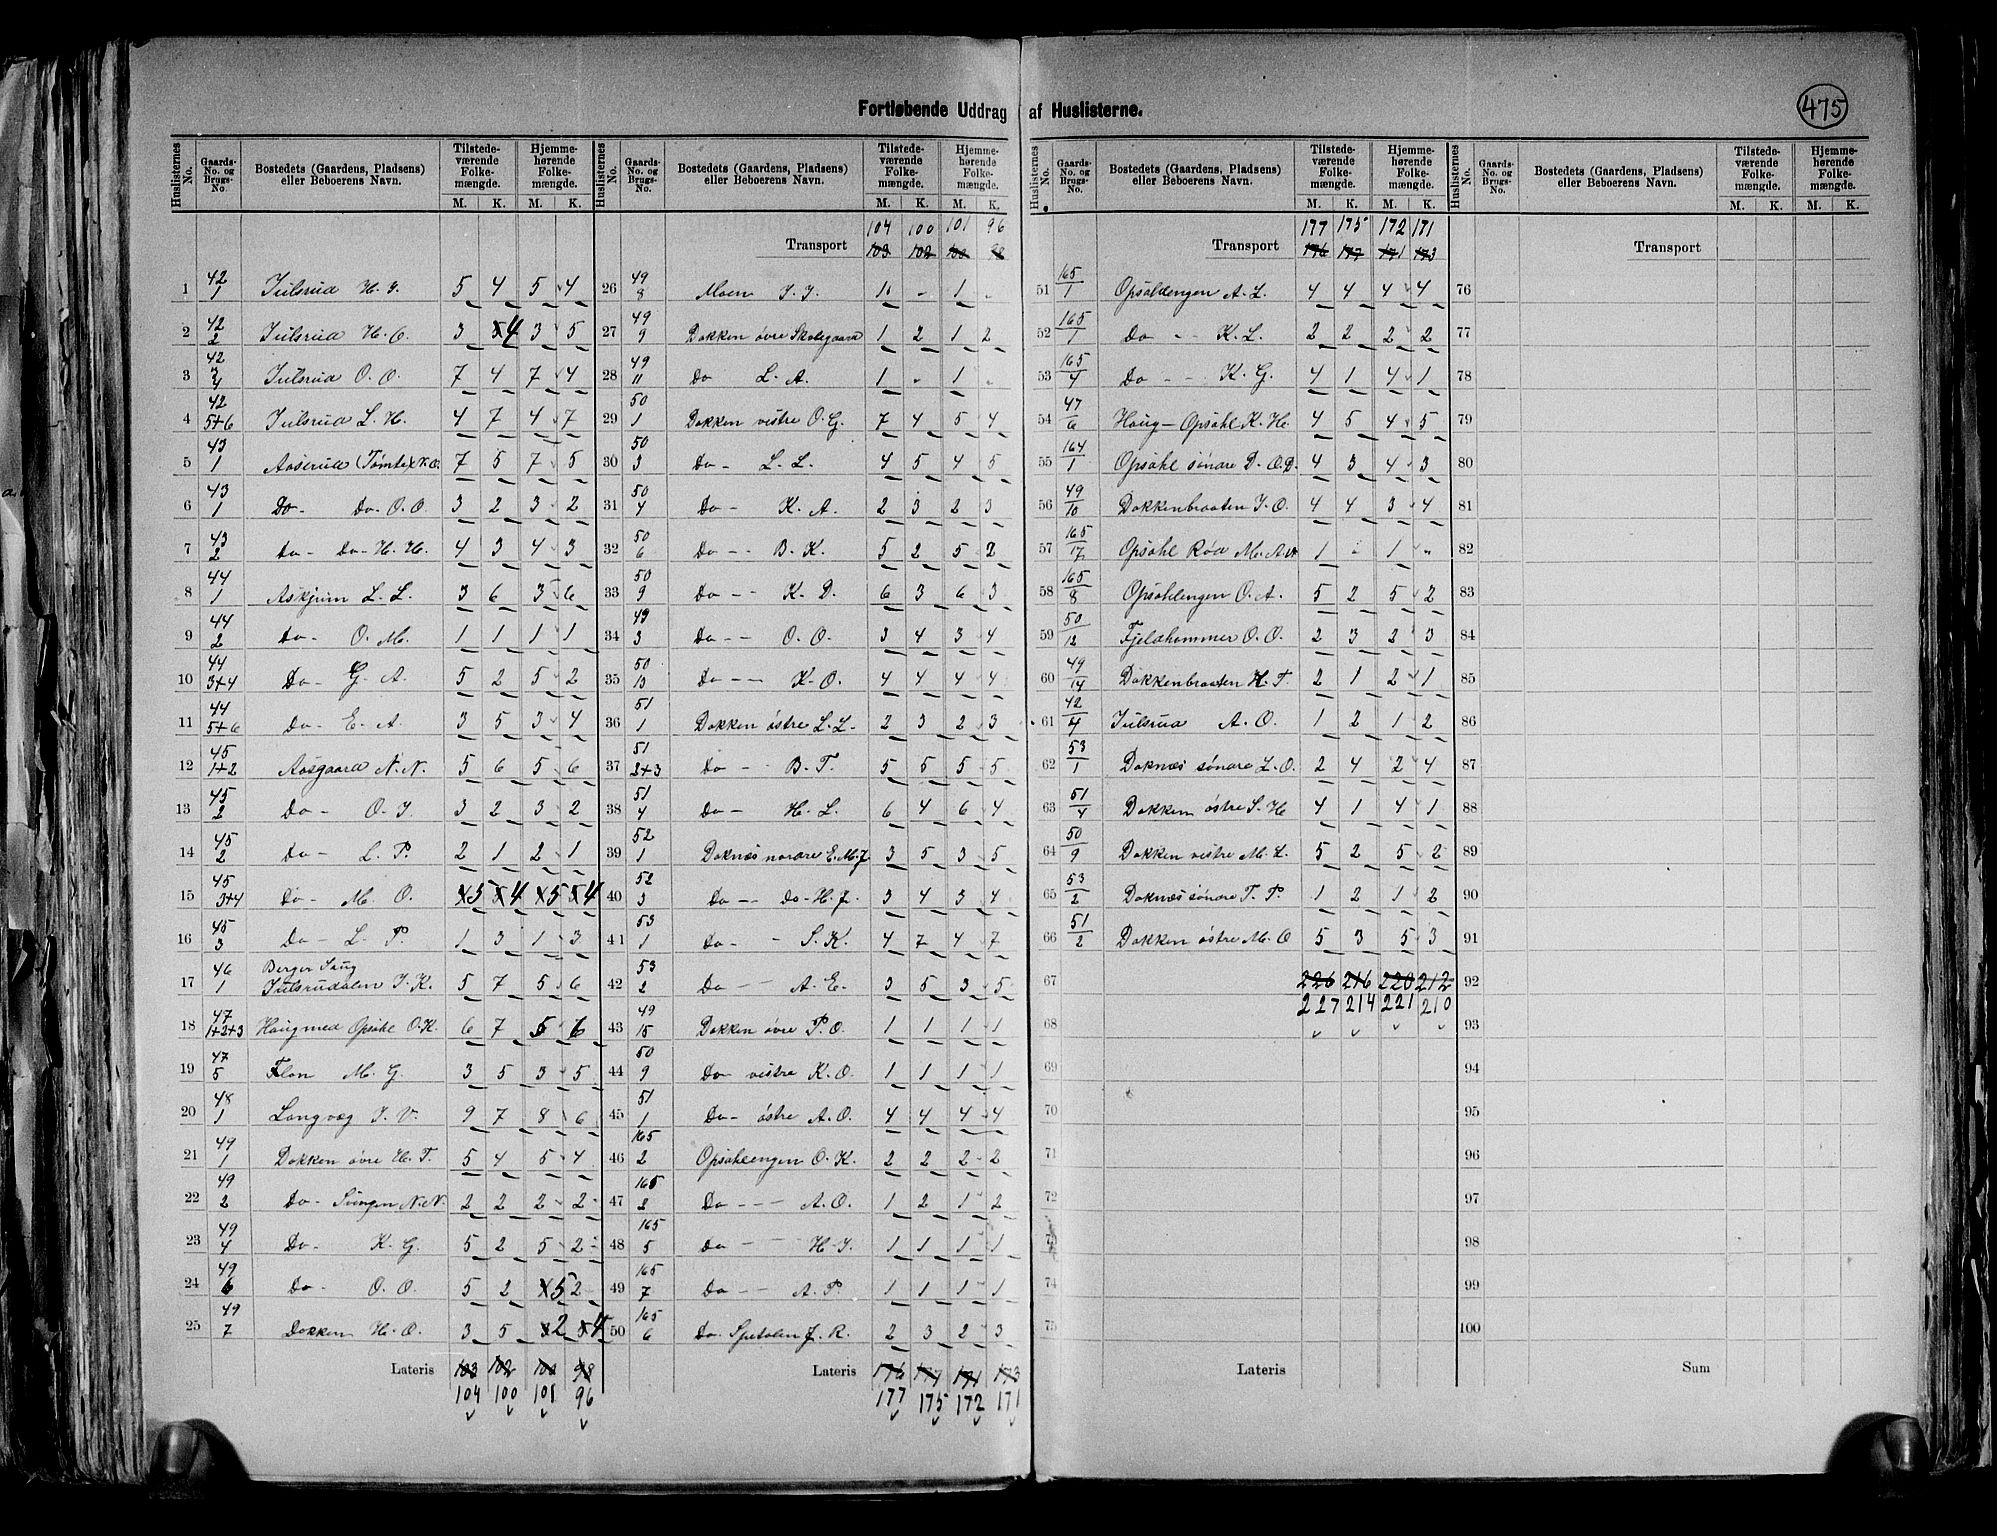 475
Fortløbende Uddrag af Huslisterne.
Huslisternes No. | Gaards-No. og Brugs-No. | Bostedets (Gaardens, Pladsens) eller Beboerens Navn. | Tilstedeværende Folkemængde. M. K. | Hjemmehørende Folkemængde. M. K.
1 42/1 Julsrud H. J. 5 4 5 4
2 42/2 Julsrud H. O. 3 4 3 5
3 42/4 Julsrud O. O. 7 4 7 4
4 42/5+6 Julsrud L. H. 4 7 4 7
5 43/1 Aaserud (Tømte) N. O. 7 5 7 5
6 43/1 Do- Do- O. O. 3 2 3 2
7 43/2 Do- Do- H. H. 4 3 4 3
8 44/1 Askjum L. L. 3 6 3 6
9 44/2 Do- O. M. 1 1 1 1
10 44/3+4 Do- G. A. 5 2 5 2
11 44/5+6 Do- E. A. 3 5 3 4
12 45/1+2 Aasgaard N. N. 5 6 5 6
13 45/2 Do- O. J. 3 2 3 2
14 45/2 Do- L. P. 2 1 2 1
15 45/3+4 Do- M. O. 5 4 5 4
16 45/3 Do- L. P. 1 3 1 3
17 46/1 Berger Saug Julsruddalen J. K. 5 7 5 6
18 47/1+2+3 Haug med Opsahl O. K. 6 7 5 6
19 47/5 Flon M. G. 3 5 3 5
20 48/1 Langvæg J. V. 9 7 8 6
21 49/1 Dokken øvre H. T. 5 4 5 4
22 49/2 Do- Svingen N. N. 2 2 2 2
23 49/4 Do- K. G. 5 2 5 2
24 49/6 Do- O. O. 5 2 5 2
25 49/7 Dokken H. O. 3 5 2 4
Lateris 103 102 100 98
104 100 101 96
Transport 104 100 101 96
103 102 100 98
26 49/8 Moen J. J. 1 - 1 -
27 49/9 Dokken øvre Skolegaard 1 2 1 2
28 49/11 Do L. A. 1 - 1 -
29 50/1 Dokken vestre O. G. 7 4 5 4
30 50/3 Do- L. L. 4 5 4 5
31 50/4 Do- K. A. 2 3 2 3
32 50/6 Do-- B. K. 5 2 5 2
33 50/9 Do-- K. D. 6 3 6 3
34 49/3 Do-- O. O. 3 4 3 4
35 50/13 Do-- K. O. 4 4 4 4
36 51/1 Dokken østre L. L. 2 3 2 3
37 51/2+3 Do- - B. T. 5 5 5 5
38 51/4 Do- H. L. 6 4 6 4
39 52/1 Doknæs nordre E. M. J. 3 5 3 5
40 52/3 Do-- Do- H. J. 3 4 3 4
41 53/1 Do- - S. K. 4 7 4 7
42 53/2 Do-- A. E. 3 5 3 5
43 49/15 Dokken øvre P. O. 1 1 1 1
44 50/9 Do vestre K. O. 1 1 1 1
45 51/1 Do- østre A. O. 4 4 4 4
46 165/2 Opsahlengen O. K. 2 2 2 2
47 165/2 Do--- A. O. 1 2 1 2
48 165/5 Do-- H. J. 1 1 1 1
49 165/7 Do--- A. P. 1 1 1 1
50 165/6 Do- Spetalen J. R. 2 3 2 3
Lateris 176 177 171 173
177 175 172 171
Transport 177 175 172 171
176 177 171 173
51 165/1 Opsahlengen A. L. 4 4 4 4
52 165/1 Do -- K. L. 2 2 2 2
53 165/4 Do -- K. G. 4 1 4 1
54 47/6 Haug- Opsahl K. H. 4 5 4 5
55 164/1 Opsahl søndre D. O. D. 4 3 4 3
56 49/10 Dokkenbraaten J. O. 4 4 3 4
57 165/17 Opsahl Rød M. A. 1 - 1 -
58 165/8 Opsahlengen O. A. 5 2 5 2
59 50/12 Fjeldhammer O. O. 2 3 2 3
60 49/14 Dokkenbraaten H. T. 2 1 2 1
61 42/4 Julsrud A. O. 1 2 1 2
62 53/1 Doknæs søndre L. O. 2 4 2 4
63 51/4 Dokken østre S. H. 4 1 4 1
64 50/9 Dokken vestre M. L. 5 2 5 2
65 53/2 Doknæs søndre T. P. 1 2 1 2
66 51/2 Dokken østre M. O 5 3 5 3
67 226 216 220 212
227 214 221 210
68
69
70
71
72
73
74
75
Lateris
Transport
76
77
78
79
80
81
82
83
84
85
86
87
88
89
90
91
92
93
94
95
96
97
98
99
100
Sum